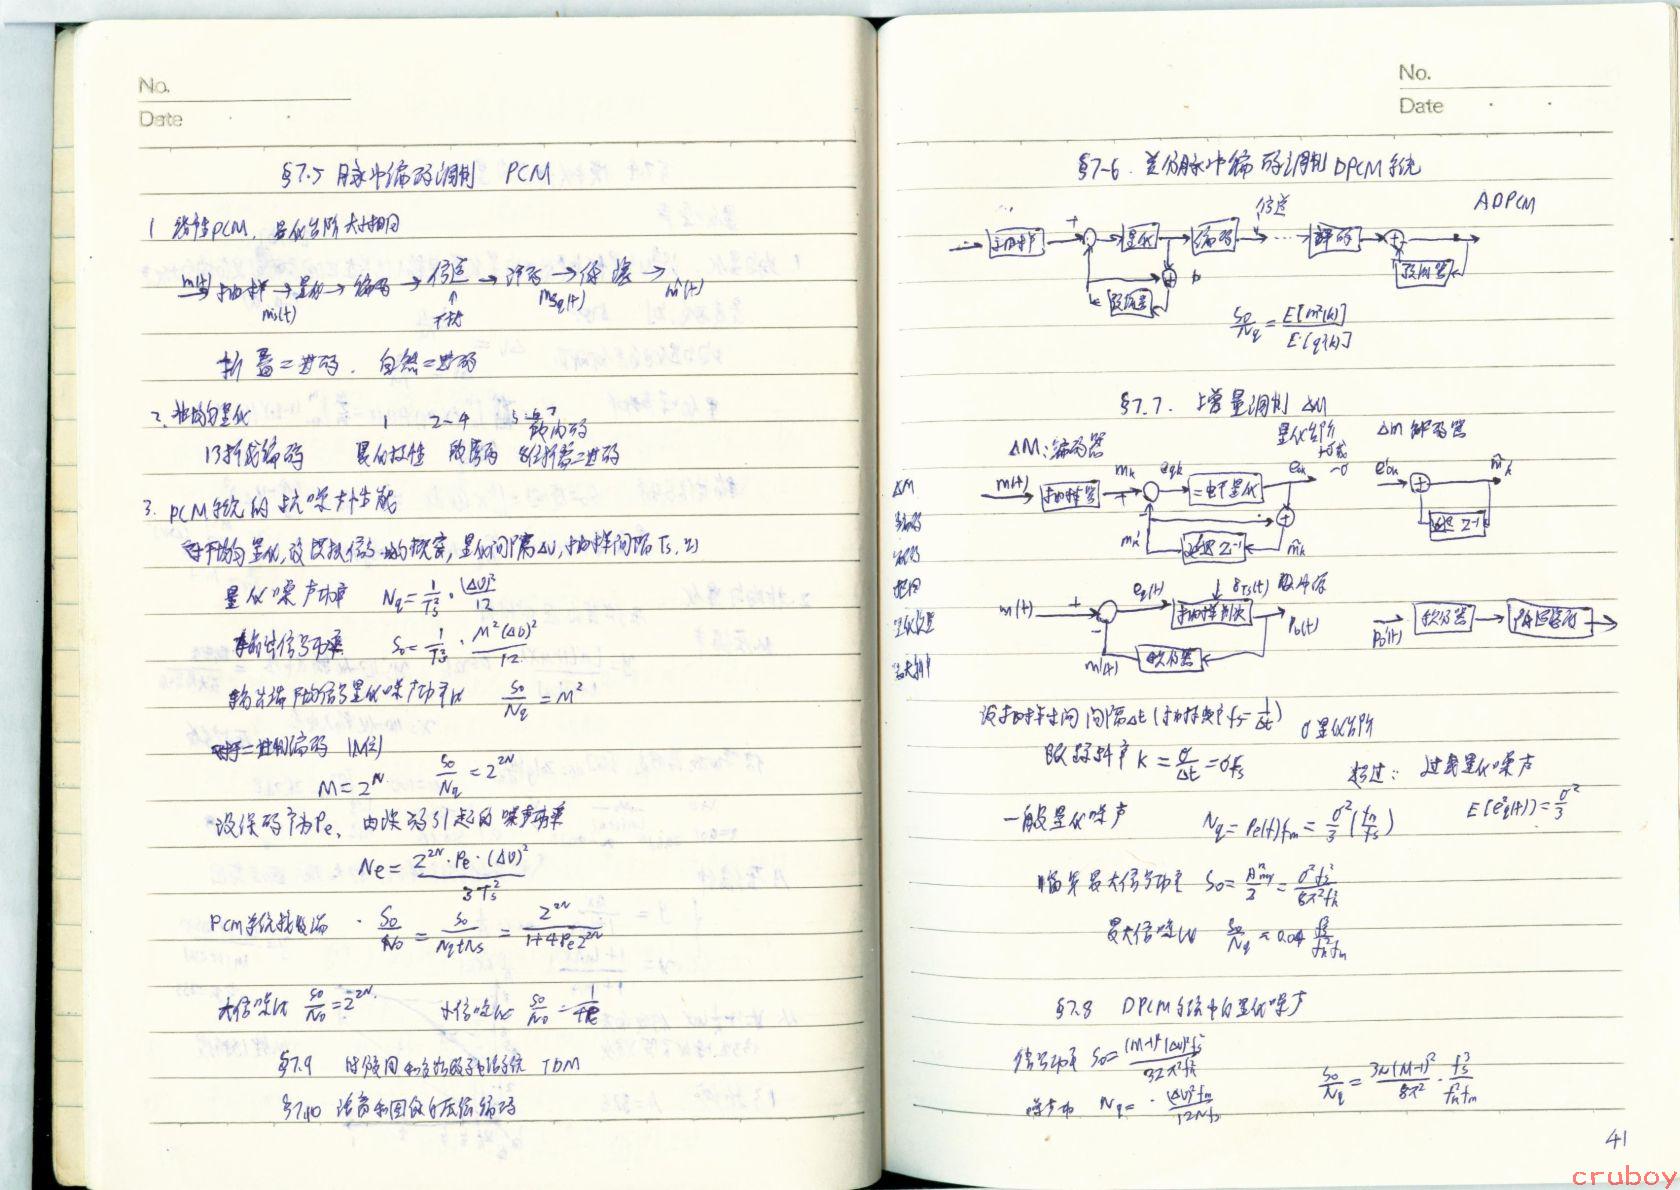 No.
Date
§7.5 脉冲编码调制 PCM
1 线性PCM, 量化台阶大小相同
m(t) → 抽样 → 量化 → 编码 → 信道 → 译码 → 低通 →
ms(t) 干扰 msq(t) m̂(t)
折叠二进码. 自然二进码
2. 非均匀量化 1 2~4 5~8 段内码
13折线编码 量化极性 段落码 8位折叠二进码
3. PCM系统的抗噪声性能
对于均匀量化, 设 概率, 量化间隔ΔU, 抽样间隔Ts, 则
量化噪声功率 Nq = 1/Ts² · (ΔU)²/12
输出信号功率 So = 1/Ts² · M²(ΔU)²/12
输出端平均信号量化噪声功率比 So/Nq = M²
对于二进制编码 (N位)
M = 2^N So/Nq = 2^2N
设误码率为Pe, 由误码引起的噪声功率
Ne = 2^2N · Pe · (ΔU)² / 3Ts²
PCM系统接收端 So/No = So/(Nq+Ns) = 2^2N/(1+4Pe2^2N)
大信噪比 So/No = 2^2N 小信噪比 So/No = 1/4Pe
§7.9 时分复用和多路数字电话系统 TDM
§7.10 语音和图像的压缩编码
No.
Date
§7-6. 差分脉冲编码调制 DPCM系统
信道 ADPCM
抽样 + 量化 编码 … 译码 +
预测器 + 预测器
So/Nq = E[m²(k)]/E[q²(k)]
§7.7. 增量调制 ΔM
ΔM: 编码器 量化台阶 ΔM 解码器
ΔM m(t) 抽样器 mk + eqk 二电平量化
mk' 延迟 Z⁻¹ m̂k 延迟 Z⁻¹
m(t) + eq(t) δTs(t) 抽样判决 Po(t) Po'(t) 积分器 低通滤波
m'(t) 积分器
设抽样时间间隔Δt (抽样频率 fs = 1/Δt) σ 量化台阶
最大跟踪斜率 k = σ/Δt = σfs 超过: 过载量化噪声
一般量化噪声 Nq = Pe(f)fm = σ²/3 (fm/fs) E[e²q(t)] = σ²/3
临界最大信号功率 So = A²max/2 = σ²fs²/8π²fk²
最大信噪比 So/Nq ≈ 0.04 fs³/fk²fm
§7.8 DPCM系统中的量化噪声
信号功率 So = (M-1)²(ΔU)²fs²/32π²fk²
噪声功 Nq = (ΔU)²fm/12Nfs So/Nq = 3N(M-1)²/8π² · fs³/fk²fm
41
cruboy